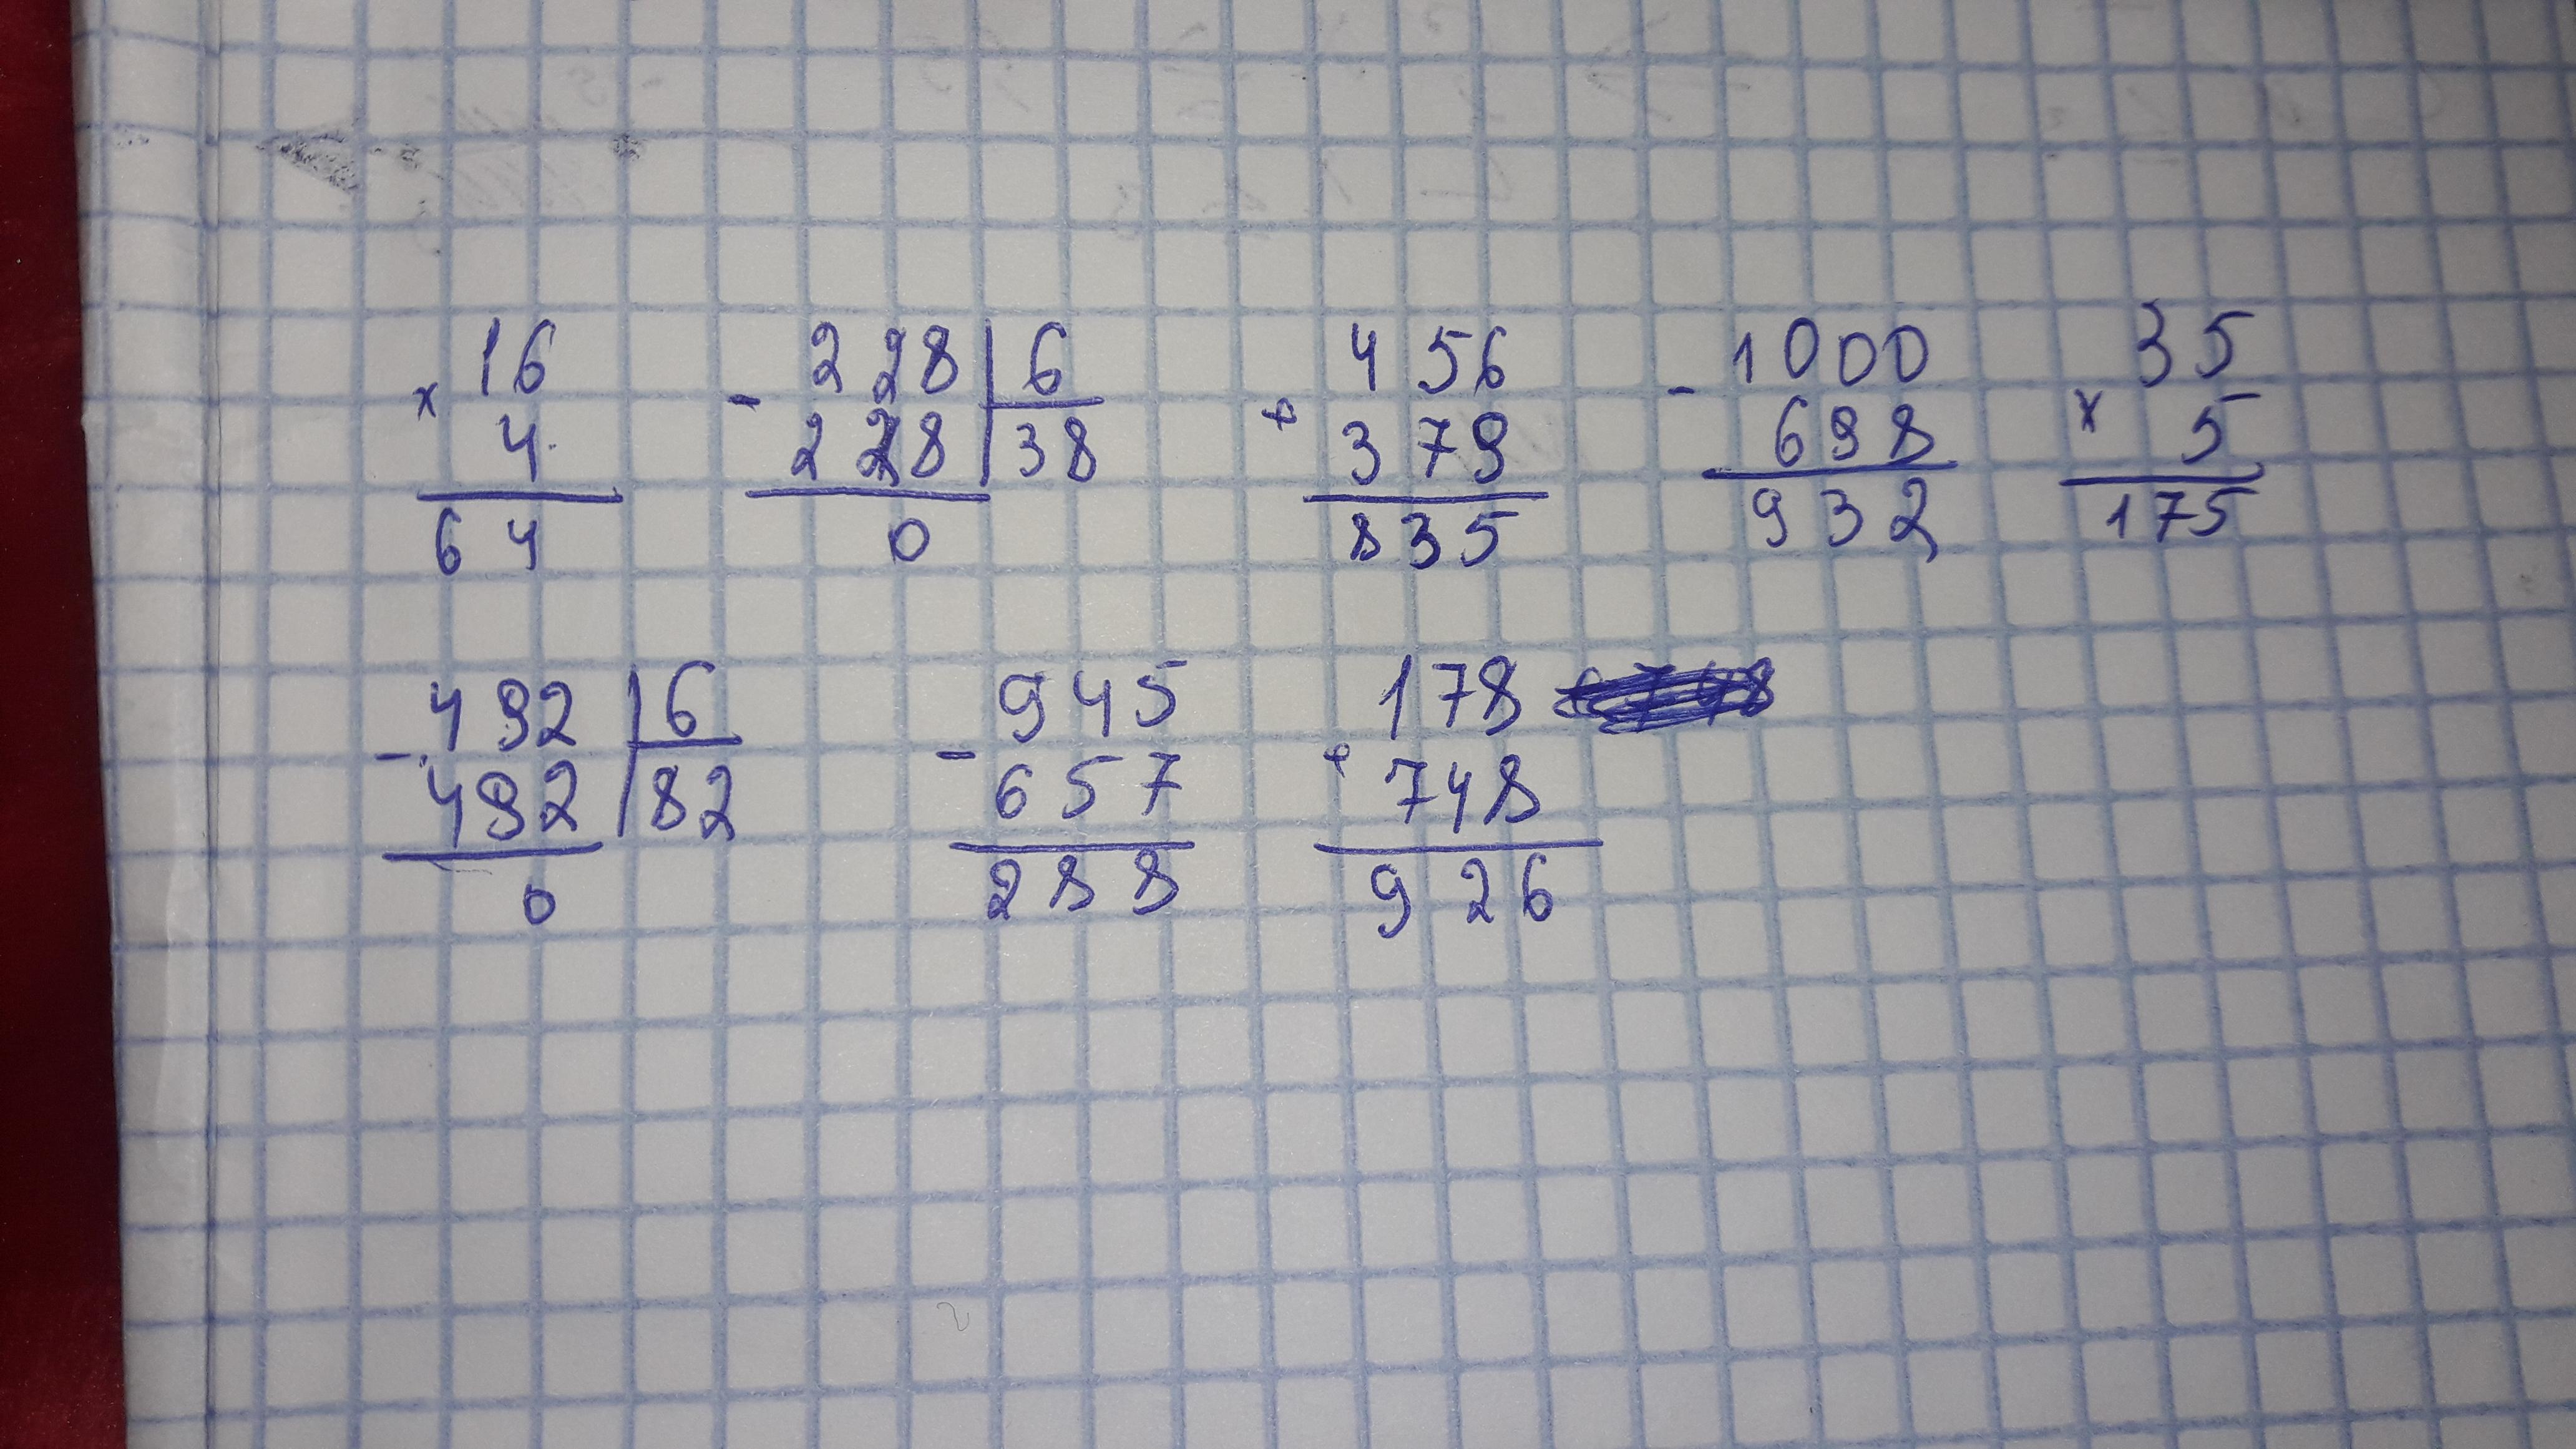 16 228 | 6 456 1000 35
× - + - ×
4 228 | 38 379 698 5
64 0 835 932 175
492 | 6 945 178
- - +
492 | 82 657 748
0 288 926